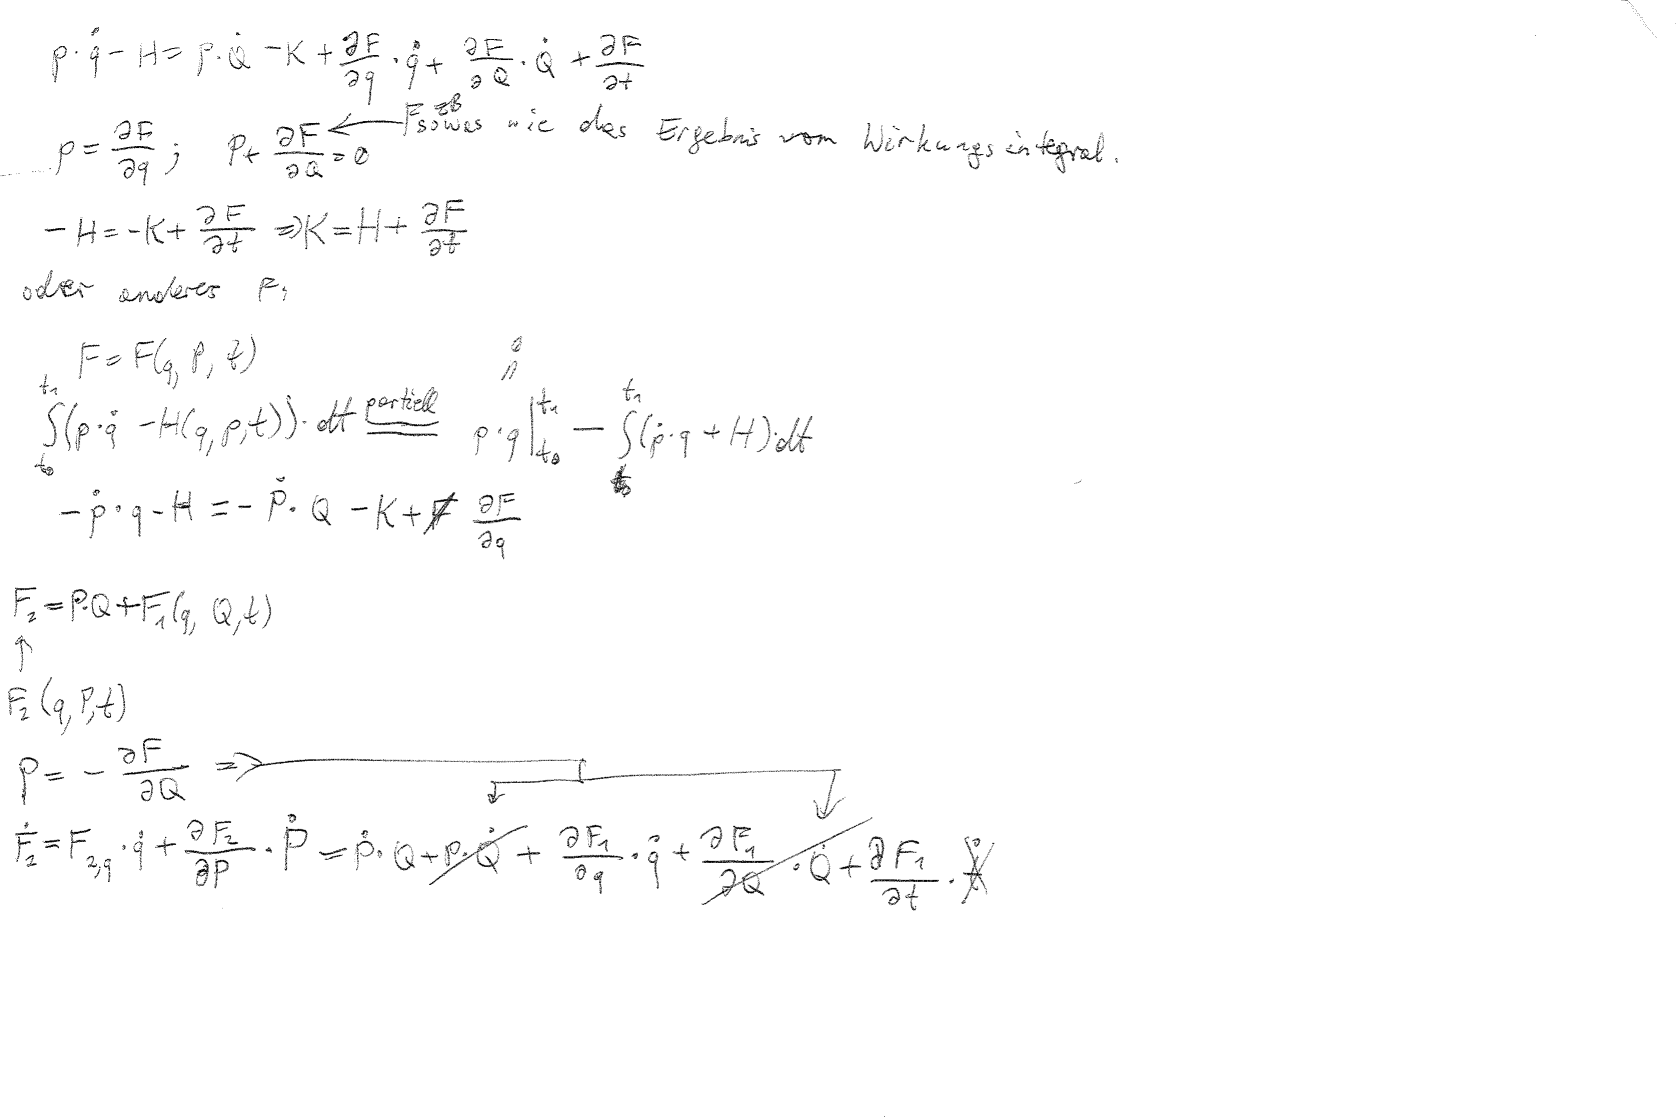 p·q̇ − H = P·Q̇ − K + ∂F/∂q · q̇ + ∂F/∂Q · Q̇ + ∂F/∂t
p = ∂F/∂q ; P + ∂F/∂Q = 0 ← F zB sowas wie das Ergebnis vom Wirkungsintegral.
−H = −K + ∂F/∂t ⇒ K = H + ∂F/∂t
oder anderes F,
F = F(q, P, t)
∫_{t₀}^{t₁} (p·q̇ − H(q, p, t))·dt =(partiell) p·q |_{t₀}^{t₁} − ∫_{t₀}^{t₁} (ṗ·q + H)·dt
−ṗ·q − H = −Ṗ·Q − K + ∂F/∂q
F₂ = P·Q + F₁(q, Q, t)
↑
F₂(q, P, t)
P = − ∂F/∂Q ⇒
Ḟ₂ = F₂,q · q̇ + ∂F₂/∂P · Ṗ = Ṗ·Q + P·Q̇ + ∂F₁/∂q · q̇ + ∂F₁/∂Q · Q̇ + ∂F₁/∂t ·